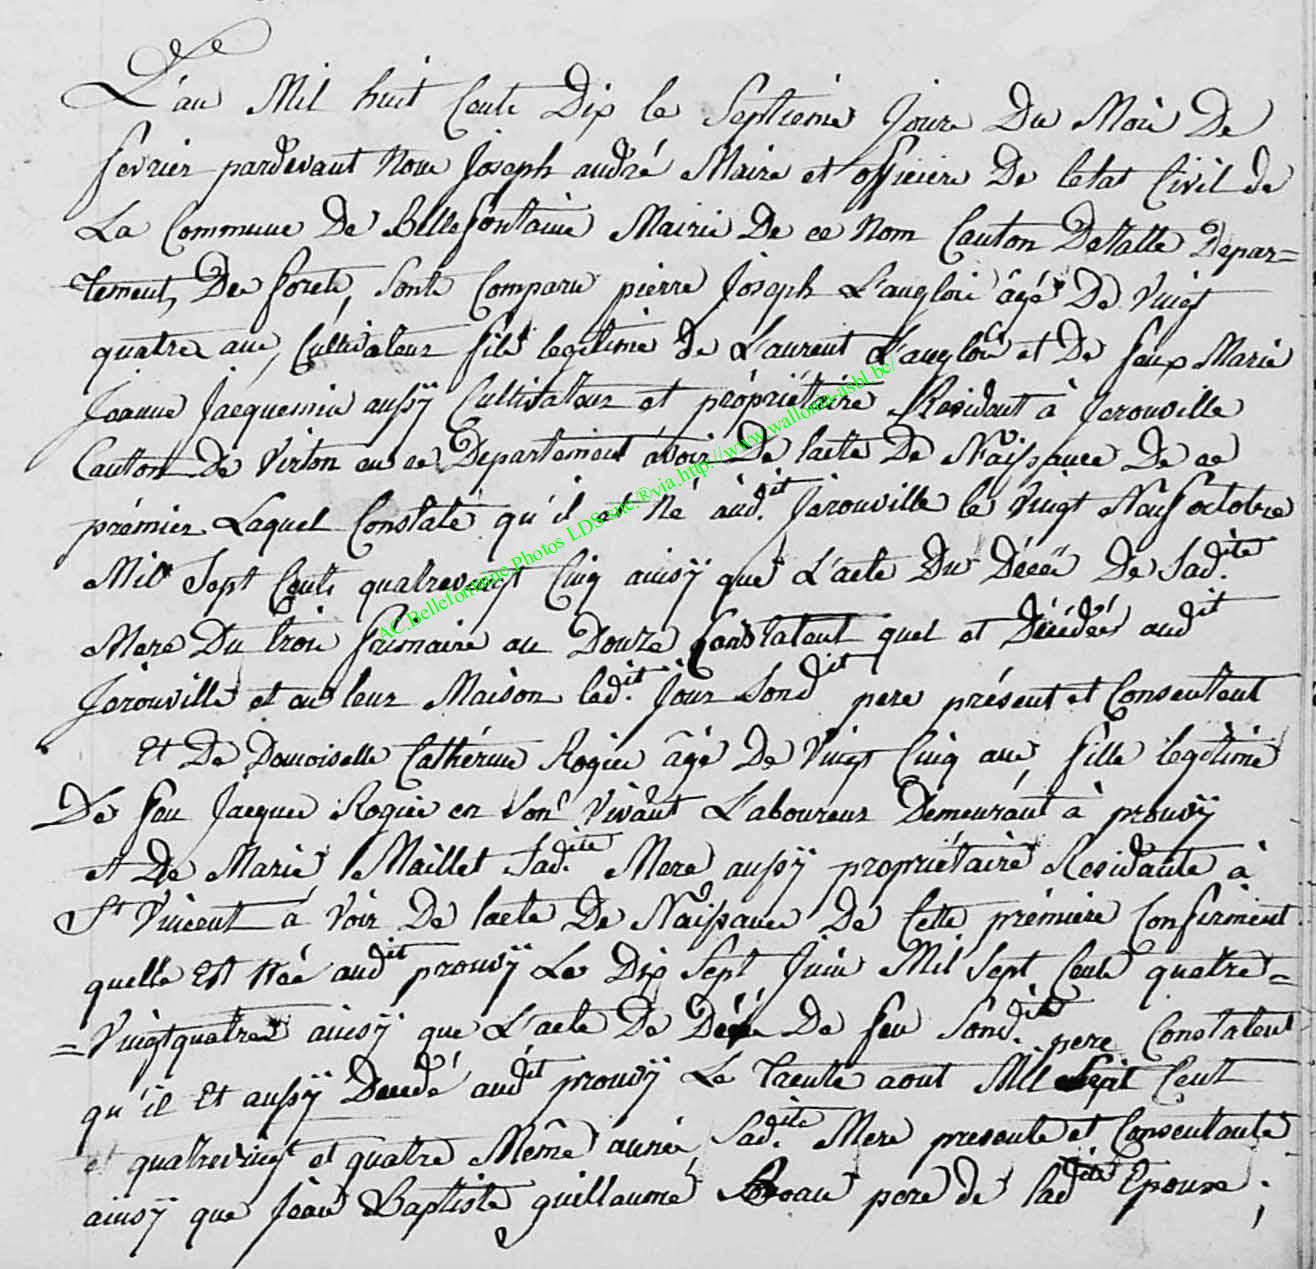 L'an Mil huit Cents Dix le Septieme Jour Du Mois De
fevrier pardevant Nous Joseph andré Maire et officiere De letat Civil de
La Commune De Bellefontaine Mairie De ce Nom Canton Detalle Depar=
tement, Des forets, Sonts Comparu pierre Joseph L'anglois âgé De Vingt
quatre ans, Cultivateur fils legitime de L'aurent L'anglois et De feux Marie
Joanne Jacquemin aussÿ Cultivateur et propriétaire Residant à Jerouville
Canton De Virton en ce Departement avoir De lacte De Naissance De ce
prémier Laquel Constate qu'il est Né audit Jarouville le Vingt Neuf octobre
Mil Sept Cents quatrevingt Cinq ainsÿ que L'acte Du Décés De Sadite
Mere Du trois frimaire an Douze Constatent quel et Décédés audit
Jérouville et en leur Maison ledit Jour Sondit pere présent et Consentent
Et De Demoiselle Cathérine Rogier âgé De Vingt Cinq ans, fille legitime
De feu Jacques Rogier en Son Vivant L'aboureur Demeurant à prouvÿ
et De Marie Maillet Sadite Mere aussÿ propriétaire Residante à
St Vincent à Voir De lacte De Naissance De Cette prémiere Confirment
quelle Est Née audit prouvÿ Le Dix Sept Juin Mil Sept Cents quatre=
=Vingtquatre ainsÿ que L'acte De Décés De feu Sondite pere Constatent
qu'il Et aussÿ Decedé audit prouvÿ Le trente aout Mil Sept Cent
et quatrevingt et quatre Même année Sadite Mere presente et Consentante
ainsÿ que Jean Baptiste guillaume pere de ladite Epouse;
AC.Bellefontaine Photos LDS site.®via.http://www.wallonia-asbl.be/